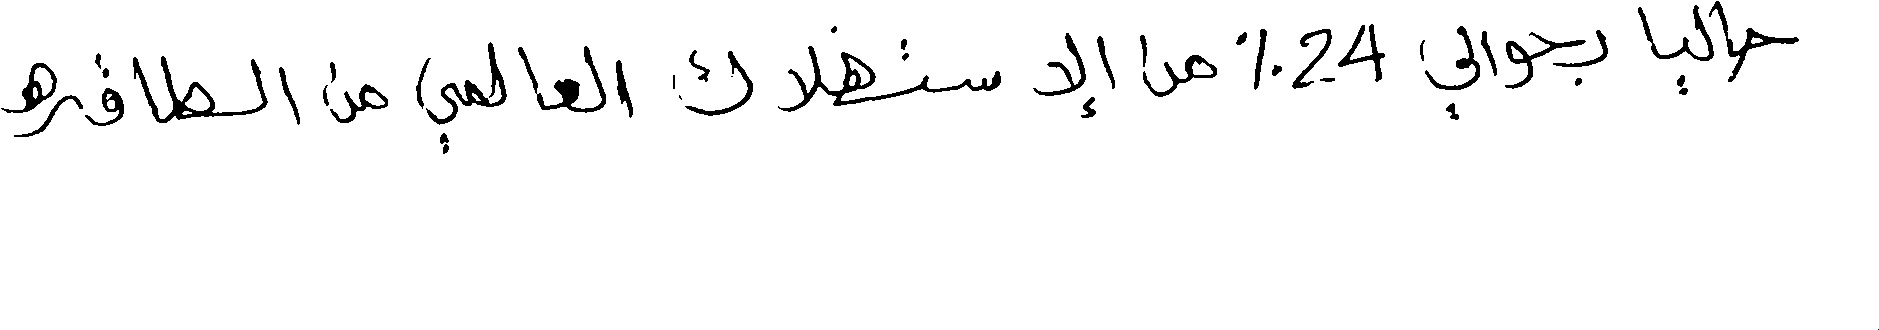 حاليا بحوالي 24٪ من الإستهلاك العالمي من الطاقة